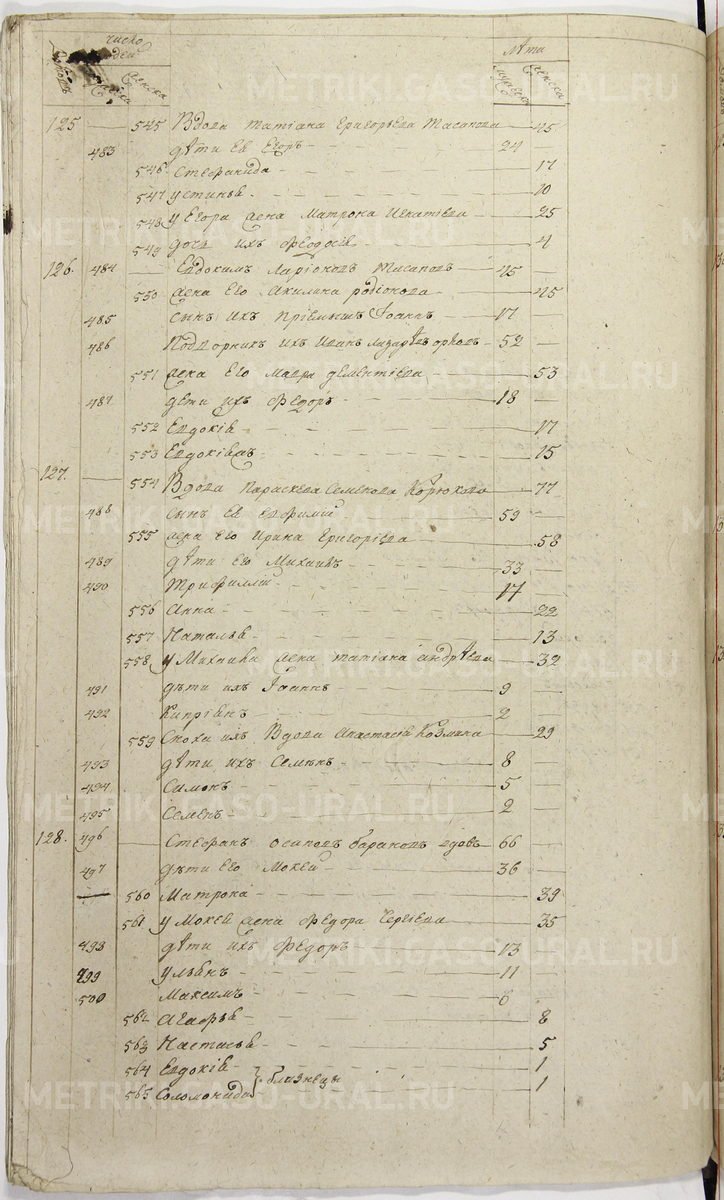 число людей лѣта
мужеска женска мужеска женска
125 — 545 Вдова татiана григорьева Масанова — 45
483 дѣти ея Егоръ — 24
546 Стефанида — 17
547 устинья — 10
548 у Егора жена Матрона Игнатiева — 25
549 дочь ихъ Феодосiя — 4
126. 484 — Евдокимъ ларiоновъ Масановъ — 45
550 жена Его Акилина родiонова — 45
485 сынъ ихъ прiемышъ Iоаннъ — 17
486 Подворникъ ихъ Иванъ лазаревъ — 52
551 жена Его мавра дементiева — 53
487 дети ихъ Федоръ — 18
552 Евдокiя — 17
553 Евдокiяжъ — 15
127. — 554 Вдова Параскева Семенова Корюкова — 77
488 сынъ ея Евфимiй — 59
555 жена Его Ирина григорiева — 58
489 дѣти Его Михаилъ — 33
490 Трифиллiй — 17
556 Анна — 22
557 Наталья — 13
558 у Михаила жена татiана андрѣева — 32
491 дѣти ихъ Iоаннъ — 9
492 Кипрiянъ — 2
559 Сноха ихъ Вдова Анастасiя Козмина — 29
493 дѣти ихъ Семѣнъ — 8
494 Симонъ — 5
495 Семенъ — 2
128. 496 — Стефанъ осиповъ барановъ вдовъ — 66
497 дѣти Его Мокей — 36
— 560 Матрона — 39
561 у Мокея жена Федора Сергiева — 35
498 дѣти ихъ Федоръ — 13
499 ульянъ — 11
500 Максимъ — 6
562 Агафья — 8
563 Настасья — 5
564 Евдокiя — } близнецы — 1
565 Соломонида — 1
METRIKI.GASO-URAL.RU
METRIKI.GASO-URAL.RU
METRIKI.GASO-URAL.RU
METRIKI.GASO-URAL.RU
METRIKI.GASO-URAL.RU
METRIKI.GASO-URAL.RU
METRIKI.GASO-URAL.RU
METRIKI.GASO-URAL.RU